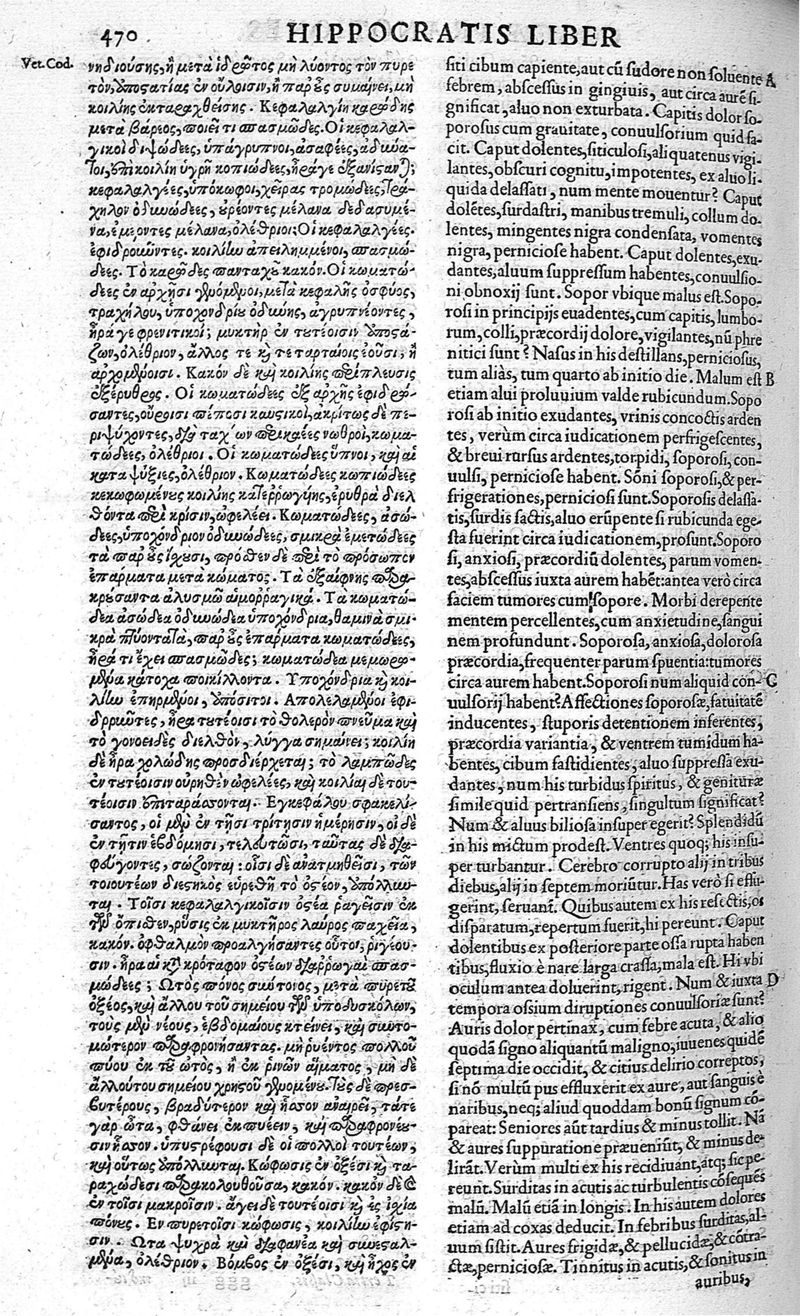 470
HIPPOCRATIS LIBER
Vet. Cod.
νηδιούσης, ἢ μετὰ ἱδρῶτος μὴ λύοντος τὸν πυρε
τὸν, ὑποστασίες ἐν οὔλοισιν, ἢ παρ᾽ οὖς συμαίνει, μὴ
κοιλίης ἐκταραχθείσης. Κεφαλαλγίη καρώδης
μετὰ βάρεος, ποιεῖ τι σπασμῶδες. Οἱ κεφαλαλ-
γικοὶ διψώδεες, ὑπάγρυπνοι, ἀσαφέες, ἀδύνα-
τοι, ἐπὶ κοιλίῃ ὑγρῇ κοπιώδεες, ἦράγε ἐξανίσταν);
κεφαλαλγέες, ὑπόκωφοι, χεῖρας τρομώδεες, τρά-
χηλον ὀδυνώδεες, οὐρέοντες μέλανα δεδασυμέ-
να, ἐμέοντες μέλανα, ὀλέθριοι; Οἱ κεφαλαλγέες.
ἐφιδροῦντες. κοιλίην ἀπειλημμένοι, σπασμώ-
δεες. Τὸ καρῶδες πανταχοῦ κακόν. Οἱ κωματώ-
δεες ἐν ἀρχῇσι γενόμενοι, μετὰ κεφαλῆς ὀσφύος,
τραχήλου, ὑποχονδρίου ὀδύνης, ἀγρυπνέοντες,
ἦράγε φρενιτικοί; μυκτὴρ ἐν τουτέοισιν ἀποστά-
ζων, ὀλέθριον, ἄλλος τε κ τεταρταίοις ἐοῦσι, ἢ
ἀρχομένοισι. Κακὸν δὲ καὶ κοιλίης περίπλευσις
ἐξέρυθρος. Οἱ κωματώδεες ἐξ ἀρχῆς ἐφιδρώ-
σαντες, οὔροισι πέποσι καυσικοὶ, ἀκρίτως δὲ πε-
ριψύχοντες, διὰ ταχέων περικαέες νωθροὶ, κωμα-
τώδεες, ὀλέθριοι. Οἱ κωματώδεες ὕπνοι, καὶ αἱ
καταψύξιες, ὀλέθριον. Κωματώδεες κωπιώδεες
κεκωφωμένοις κοιλίης καταρραγείσης, ἐρυθρὰ διελ
θόντα περὶ κρίσιν, ὠφελέει. Κωματώδεες, ἀσώ-
δεες, ὑποχόνδριον ὀδυνώδεες, σμικρὰ ἐμετώδεες
τὰ παρ᾽ οὖς ἴχουσι, πρόσθεν δὲ περὶ τὸ πρόσωπον
ἐπάρματα μετὰ κώματος. Τὰ ἐξαίφνης παρα-
κρούσαντα ἀλυσμῷ αἱμορραγικά. Τὰ κωματώ-
δεα ἀσώδεα ὀδυνώδεα ὑποχόνδρια, θαμινὰ σμι-
κρὰ πτύονται, παρ᾽ οὖς ἐπάρματα κωματώδεες,
ἦρά τι ἔχει σπασμώδες; κωματώδεα μεμωρω-
μένα κάτοχα ποικίλλοντα. Υποχόνδρια κ κοι-
λίην ἐπηρμένοι, ὑπόσιτοι. Απολελαμμένοι ἐφι-
δρροῦντες, ἦρα τουτέοισι τὸ θολερὸν πνεῦμα καὶ
τὸ γονοειδὲς διελθὸν, λύγγα σημαίνει; κοιλίη
δὲ ἦρα χολώδης προσδιέρχεται; τὸ λαμπῶδες
ἐν τουτέοισιν οὐρηθὲν ὠφελέες, καὶ κοιλίαι δὲ του-
τέοισιν ἐπιταράσσονται. Εγκεφάλου σφακελί-
σαντος, οἱ μὲν ἐν τῇσι τρίτῃσιν ἡμέρῃσιν, οἱ δὲ
ἐν τῇτιν ἑβδόμῃσι, τελευτῶσι, ταύτας δὲ δια-
φυγόντες, σώζονται: οἷσι δὲ ἀνατμηθεῖσι, τῶν
τοιουτέων διεστηκὸς εὑρεθῇ τὸ ὀστέον, ἀπόλλυν-
ται. Τοῖσι κεφαλαλγικοῖσιν ὀστέα ῥαγεῖσιν ἐκ
τοῦ ὄπιθεν, ῥύσις ἐκ μυκτῆρος λαῦρος παχεῖα,
κακόν. ὀφθαλμὸν προαλγήσαντες οὗτοι, ῥιγέου-
σιν. ἦρα αἱ κατὰ κρόταφον ὀστέων διαρρωγαὶ σπασ-
μώδεες; Ωτὸς πόνος σύντονος, μετὰ πυρετοῦ
ὀξέος, καὶ ἄλλου τοῦ σημείου τῶν ὑποδυσκόλων,
τοὺς μὲν νέους, ἑβδομαίους κτείνει, καὶ συντο-
μώτερον παραφρονήσαντας. μὴ ῥυέντος πολλοῦ
πύου ἐκ τοῦ ὠτὸς, ἢ ἐκ ῥινῶν αἵματος, μὴ δὲ
ἄλλου του σημείου χρηστοῦ γενομένου. Τοὺς δὲ πρεσ-
βυτέρους, βραδύτερον καὶ ἧσσον ἀναιρεῖ, τά τε
γὰρ ὦτα, φθάνει ἐκπυέειν, καὶ παραφρονέου-
σιν ἧσσον. ὑπυςρέφουσι δὲ οἱ πολλοὶ τουτέων,
καὶ οὕτως ἀπόλλυνται. Κώφωσις ἐν ὀξέσι κ τα-
ραχώδεσι παρακολουθοῦσα, κακόν. κακὸν δὲ καὶ
ἐν τοῖσι μακροῖσιν. ἄγει δὲ τουτέοισι κ ἐς ἰσχία
πόνους. Εν πυρετοῖσι κώφωσις, κοιλίην ἐφίστη-
σιν. Ωτα ψυχρὰ καὶ διαφανέα καὶ συνεσταλ-
μένα, ὀλέθριον. Βόμβος ἐν ὀξέσι, καὶ ἦχος ἐν
siti cibum capiente, aut cũ sudore non soluente A
febrem, abscessus in gingiuis, aut circa aurẽ si-
gnificat, aluo non exturbata. Capitis dolor so-
porosus cum grauitate, conuulsorium quid fa-
cit. Caput dolentes, siticulosi, aliquatenus vigi-
lantes, obscuri cognitu, impotentes, ex aluo li-
quida delassati, num mente mouentur? Caput
dolẽtes, surdastri, manibus tremuli, collum do-
lentes, mingentes nigra condensata, vomentes
nigra, perniciose habent. Caput dolentes, exu-
dantes, aluum suppressum habentes, conuulsio-
ni obnoxij sunt. Sopor vbique malus est. Sopo-
rosi in principijs euadentes, cum capitis, lumbo-
rum, colli, præcordij dolore, vigilantes, nũ phre
nitici sunt? Nasus in his destillans, perniciosus,
tum aliàs, tum quarto ab initio die. Malum est B
etiam alui proluuium valde rubicundum. Sopo
rosi ab initio exudantes, vrinis concoctis arden
tes, verùm circa iudicationem perfrigescentes,
& breui rursus ardentes, torpidi, soporosi, con-
uulsi, perniciose habent. Sõni soporosi, & per-
frigerationes, perniciosi sunt. Soporosis delassa-
tis, surdis factis, aluo erũpente si rubicunda ege-
sta fuerint circa iudicationem, prosunt. Soporo
si, anxiosi, præcordiũ dolentes, parum vomen-
tes, abscessus iuxta aurem habẽt: antea verò circa
faciem tumores cum sopore. Morbi derepente
mentem percellentes, cum anxietudine, sangui
nem profundunt. Soporosa, anxiosa, dolorosa
præcordia, frequenter parum spuentia: tumores
circa aurem habent. Soporosi num aliquid con- C
uulsorij habent? Affectiones soporosæ, fatuitatẽ
inducentes, stuporis detentionem inferentes,
præcordia variantia, & ventrem tumidum ha-
bentes, cibum fastidientes, aluo suppressa exu-
dantes, num his turbidus spiritus, & genituræ
simile quid pertransiens, singultum significat?
Num & aluus biliosa insuper egerit? Splendidũ
in his mictum prodest. Ventres quoq; his insu-
per turbantur. Cerebro corrupto alij in tribus
diebus, alij in septem moriũtur. Has verò si effu-
gerint, seruant̃. Quibus autem ex his resectis, os
disparatum, repertum fuerit, hi pereunt. Caput
dolentibus ex posteriore parte ossa rupta haben
tibus, fluxio è nare larga crassa, mala est. Hi vbi
oculum antea doluerint, rigent. Num & iuxta D
tempora ossium diruptiones conuulsoriæ sunt?
Auris dolor pertinax, cum febre acuta, & alio
quodã signo aliquantũ maligno, iuuenes quidẽ
septima die occidit, & citius delirio correptos,
si nõ multũ pus effluxerit ex aure, aut sanguis è
naribus, neq; aliud quoddam bonũ signum cõ-
pareat: Seniores aũt tardius & minus tollit. Nã
& aures suppuratione præueniũt, & minus de-
lirãt. Verùm multi ex his recidiuant, atq; sic pe-
reunt. Surditas in acutis ac turbulentis cõsequẽs
malũ. Malũ etiã in longis. In his autem dolores
etiam ad coxas deducit. In febribus surditas, al-
uum sistit. Aures frigidæ, & pellucidæ, & cõtra-
ctæ, perniciosæ. Tinnitus in acutis, & sonitus in
auribus,